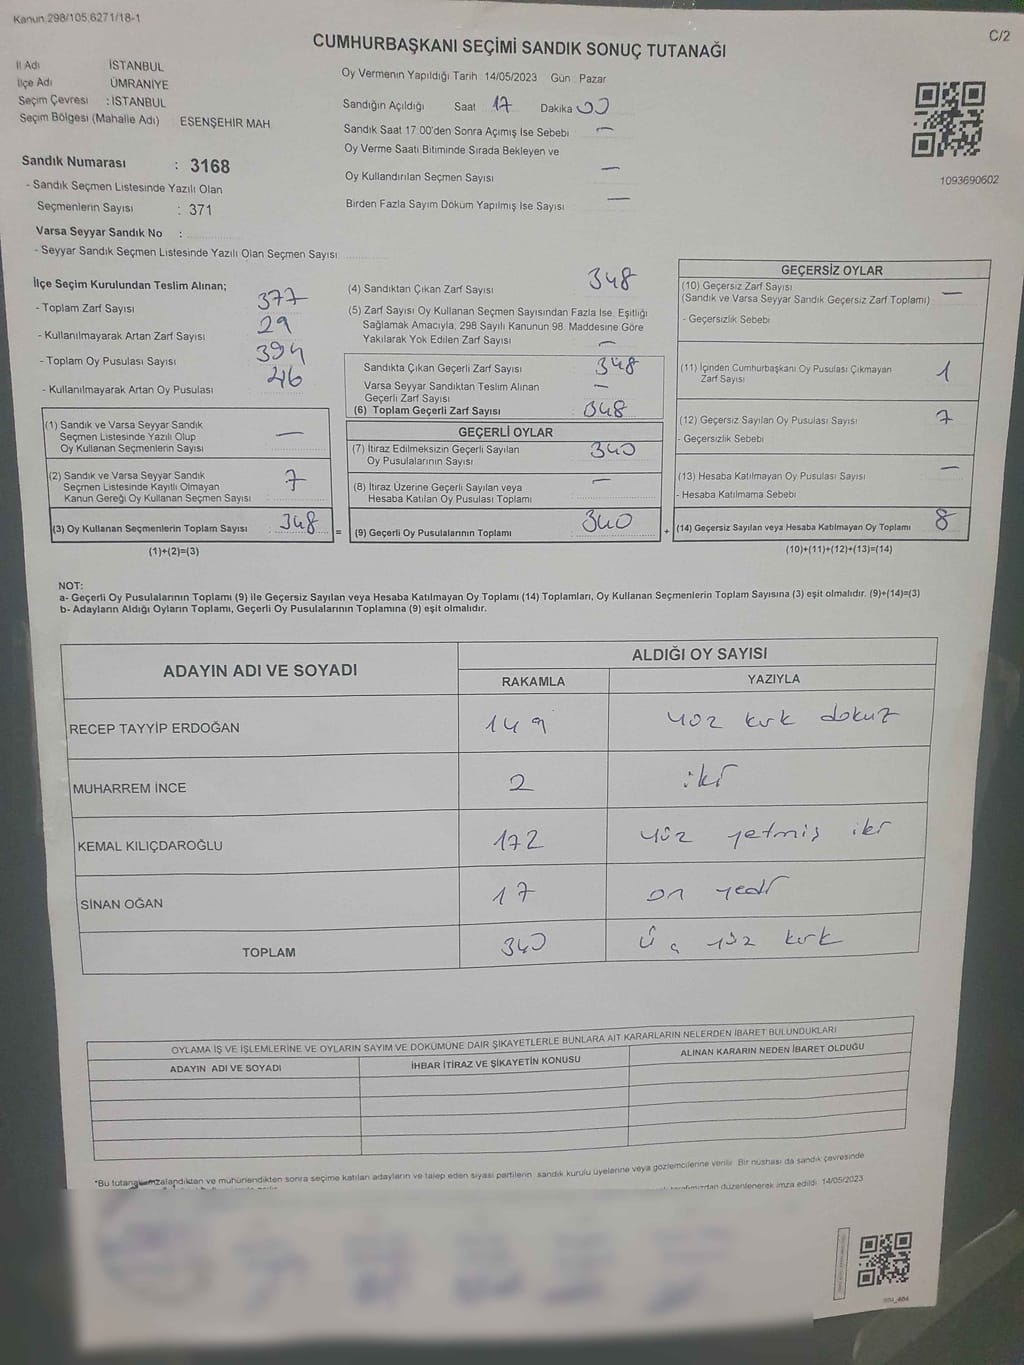 Kanun,298/105,6271/18-1
C/2
CUMHURBAŞKANI SEÇİMİ SANDIK SONUÇ TUTANAĞI
İl Adı İSTANBUL
İlçe Adı ÜMRANİYE
Seçim Çevresi : İSTANBUL
Seçim Bölgesi (Mahalle Adı) ESENŞEHİR MAH
Sandık Numarası : 3168
- Sandık Seçmen Listesinde Yazılı Olan
Seçmenlerin Sayısı : 371
Varsa Seyyar Sandık No :
- Seyyar Sandık Seçmen Listesinde Yazılı Olan Seçmen Sayısı
Oy Vermenin Yapıldığı Tarih 14/05/2023 Gün Pazar
Sandığın Açıldığı Saat 17 Dakika 00
Sandık Saat 17:00'den Sonra Açımış İse Sebebi —
Oy Verme Saati Bitiminde Sırada Bekleyen ve
Oy Kullandırılan Seçmen Sayısı —
Birden Fazla Sayım Döküm Yapılmış İse Sayısı —
1093690602
İlçe Seçim Kurulundan Teslim Alınan;
- Toplam Zarf Sayısı 377
- Kullanılmayarak Artan Zarf Sayısı 29
- Toplam Oy Pusulası Sayısı 394
- Kullanılmayarak Artan Oy Pusulası 46
(1) Sandık ve Varsa Seyyar Sandık
Seçmen Listesinde Yazılı Olup
Oy Kullanan Seçmenlerin Sayısı —
(2) Sandık ve Varsa Seyyar Sandık
Seçmen Listesinde Kayıtlı Olmayan
Kanun Gereği Oy Kullanan Seçmen Sayısı 7
(3) Oy Kullanan Seçmenlerin Toplam Sayısı 348
(1)+(2)=(3)
(4) Sandıktan Çıkan Zarf Sayısı 348
(5) Zarf Sayısı Oy Kullanan Seçmen Sayısından Fazla İse, Eşitliği
Sağlamak Amacıyla, 298 Sayılı Kanunun 98. Maddesine Göre
Yakılarak Yok Edilen Zarf Sayısı —
Sandıkta Çıkan Geçerli Zarf Sayısı 348
Varsa Seyyar Sandıktan Teslim Alınan
Geçerli Zarf Sayısı —
(6) Toplam Geçerli Zarf Sayısı 348
GEÇERLİ OYLAR
(7) İtiraz Edilmeksizin Geçerli Sayılan
Oy Pusulalarının Sayısı 340
(8) İtiraz Üzerine Geçerli Sayılan veya
Hesaba Katılan Oy Pusulası Toplamı —
= (9) Geçerli Oy Pusulalarının Toplamı 340
GEÇERSİZ OYLAR
(10) Geçersiz Zarf Sayısı
(Sandık ve Varsa Seyyar Sandık Geçersiz Zarf Toplamı) —
- Geçersizlik Sebebi
(11) İçinden Cumhurbaşkanı Oy Pusulası Çıkmayan
Zarf Sayısı 1
(12) Geçersiz Sayılan Oy Pusulası Sayısı 7
- Geçersizlik Sebebi
(13) Hesaba Katılmayan Oy Pusulası Sayısı —
- Hesaba Katılmama Sebebi
+ (14) Geçersiz Sayılan veya Hesaba Katılmayan Oy Toplamı 8
(10)+(11)+(12)+(13)=(14)
NOT:
a- Geçerli Oy Pusulalarının Toplamı (9) ile Geçersiz Sayılan veya Hesaba Katılmayan Oy Toplamı (14) Toplamları, Oy Kullanan Seçmenlerin Toplam Sayısına (3) eşit olmalıdır. (9)+(14)=(3)
b- Adayların Aldığı Oyların Toplamı, Geçerli Oy Pusulalarının Toplamına (9) eşit olmalıdır.
ADAYIN ADI VE SOYADI ALDIĞI OY SAYISI
RAKAMLA YAZIYLA
RECEP TAYYİP ERDOĞAN 149 yüz kırk dokuz
MUHARREM İNCE 2 iki
KEMAL KILIÇDAROĞLU 172 yüz yetmiş iki
SİNAN OĞAN 17 on yedi
TOPLAM 340 Üç yüz kırk
OYLAMA İŞ VE İŞLEMLERİNE VE OYLARIN SAYIM VE DÖKÜMÜNE DAİR ŞİKAYETLERLE BUNLARA AİT KARARLARIN NELERDEN İBARET BULUNDUKLARI
ADAYIN ADI VE SOYADI İHBAR İTİRAZ VE ŞİKAYETİN KONUSU ALINAN KARARIN NEDEN İBARET OLDUĞU
*Bu tutanak imzalandıktan ve mühürlendikten sonra seçime katılan adayların ve talep eden siyasi partilerin, sandık kurulu üyelerine veya gözlemcilerine verilir. Bir nüshası da sandık çevresinde
tarafımızdan düzenlenerek imza edildi. 14/05/2023